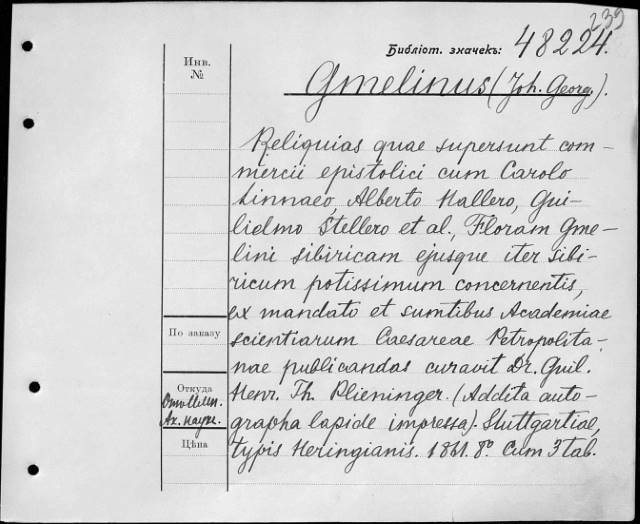 239
Библіот. значекъ: 48224.
Инв.
№
Gmelinus (Joh. Georg.).
Reliquias quae supersunt com-
mercii epistolici cum Carolo
Linnaeo, Alberto Hallero, Gui-
lielmo Stellero et al., Floram Gme-
lini sibiricam ejusque iter sibi-
ricum potissimum concernentis,
ex mandato et sumtibus Academiae
scientiarum Caesareae Petropolita-
nae publicandas curavit Dr. Guil.
Henr. Th. Plieninger. (Addita auto-
grapha lapide impressa). Stuttgartiae,
typis Heringianis. 1861. 8º. Cum 3 tab.
По заказу
Откуда
Ак. наукъ.
Цѣна